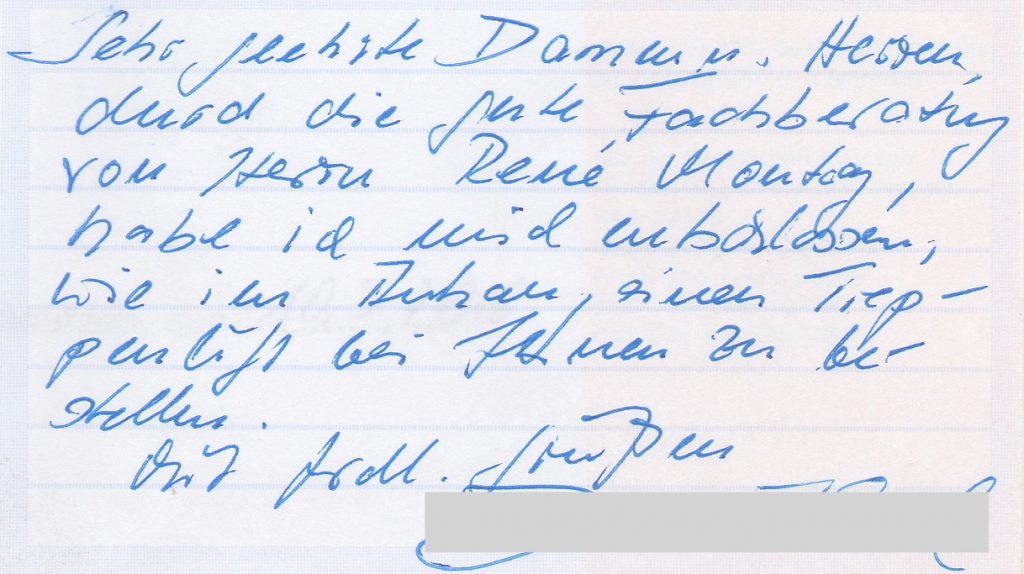 Sehr geehrte Damen u. Herren,
durch die gute Fachberatung
von Herrn René Montag,
habe ich mich entschlossen,
wie im Anhang, einen Trep-
penlift bei Ihnen zu be-
stellen.
Mit frdl. Grüßen